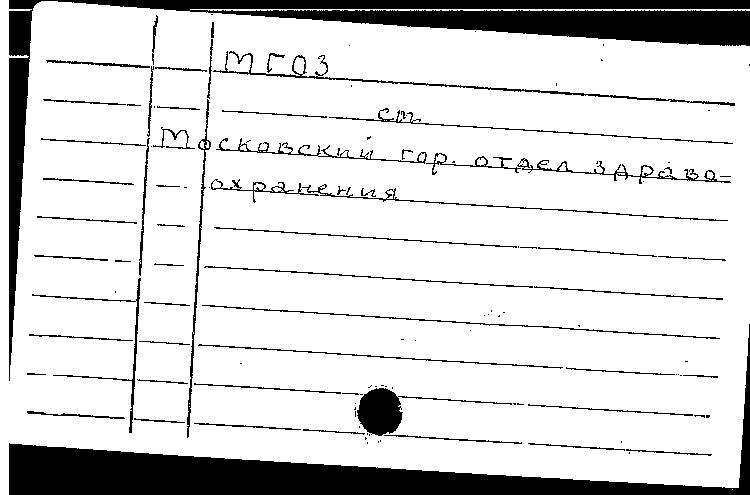 МГОЗ
см.
Московский гор. отдел здраво=
охранения